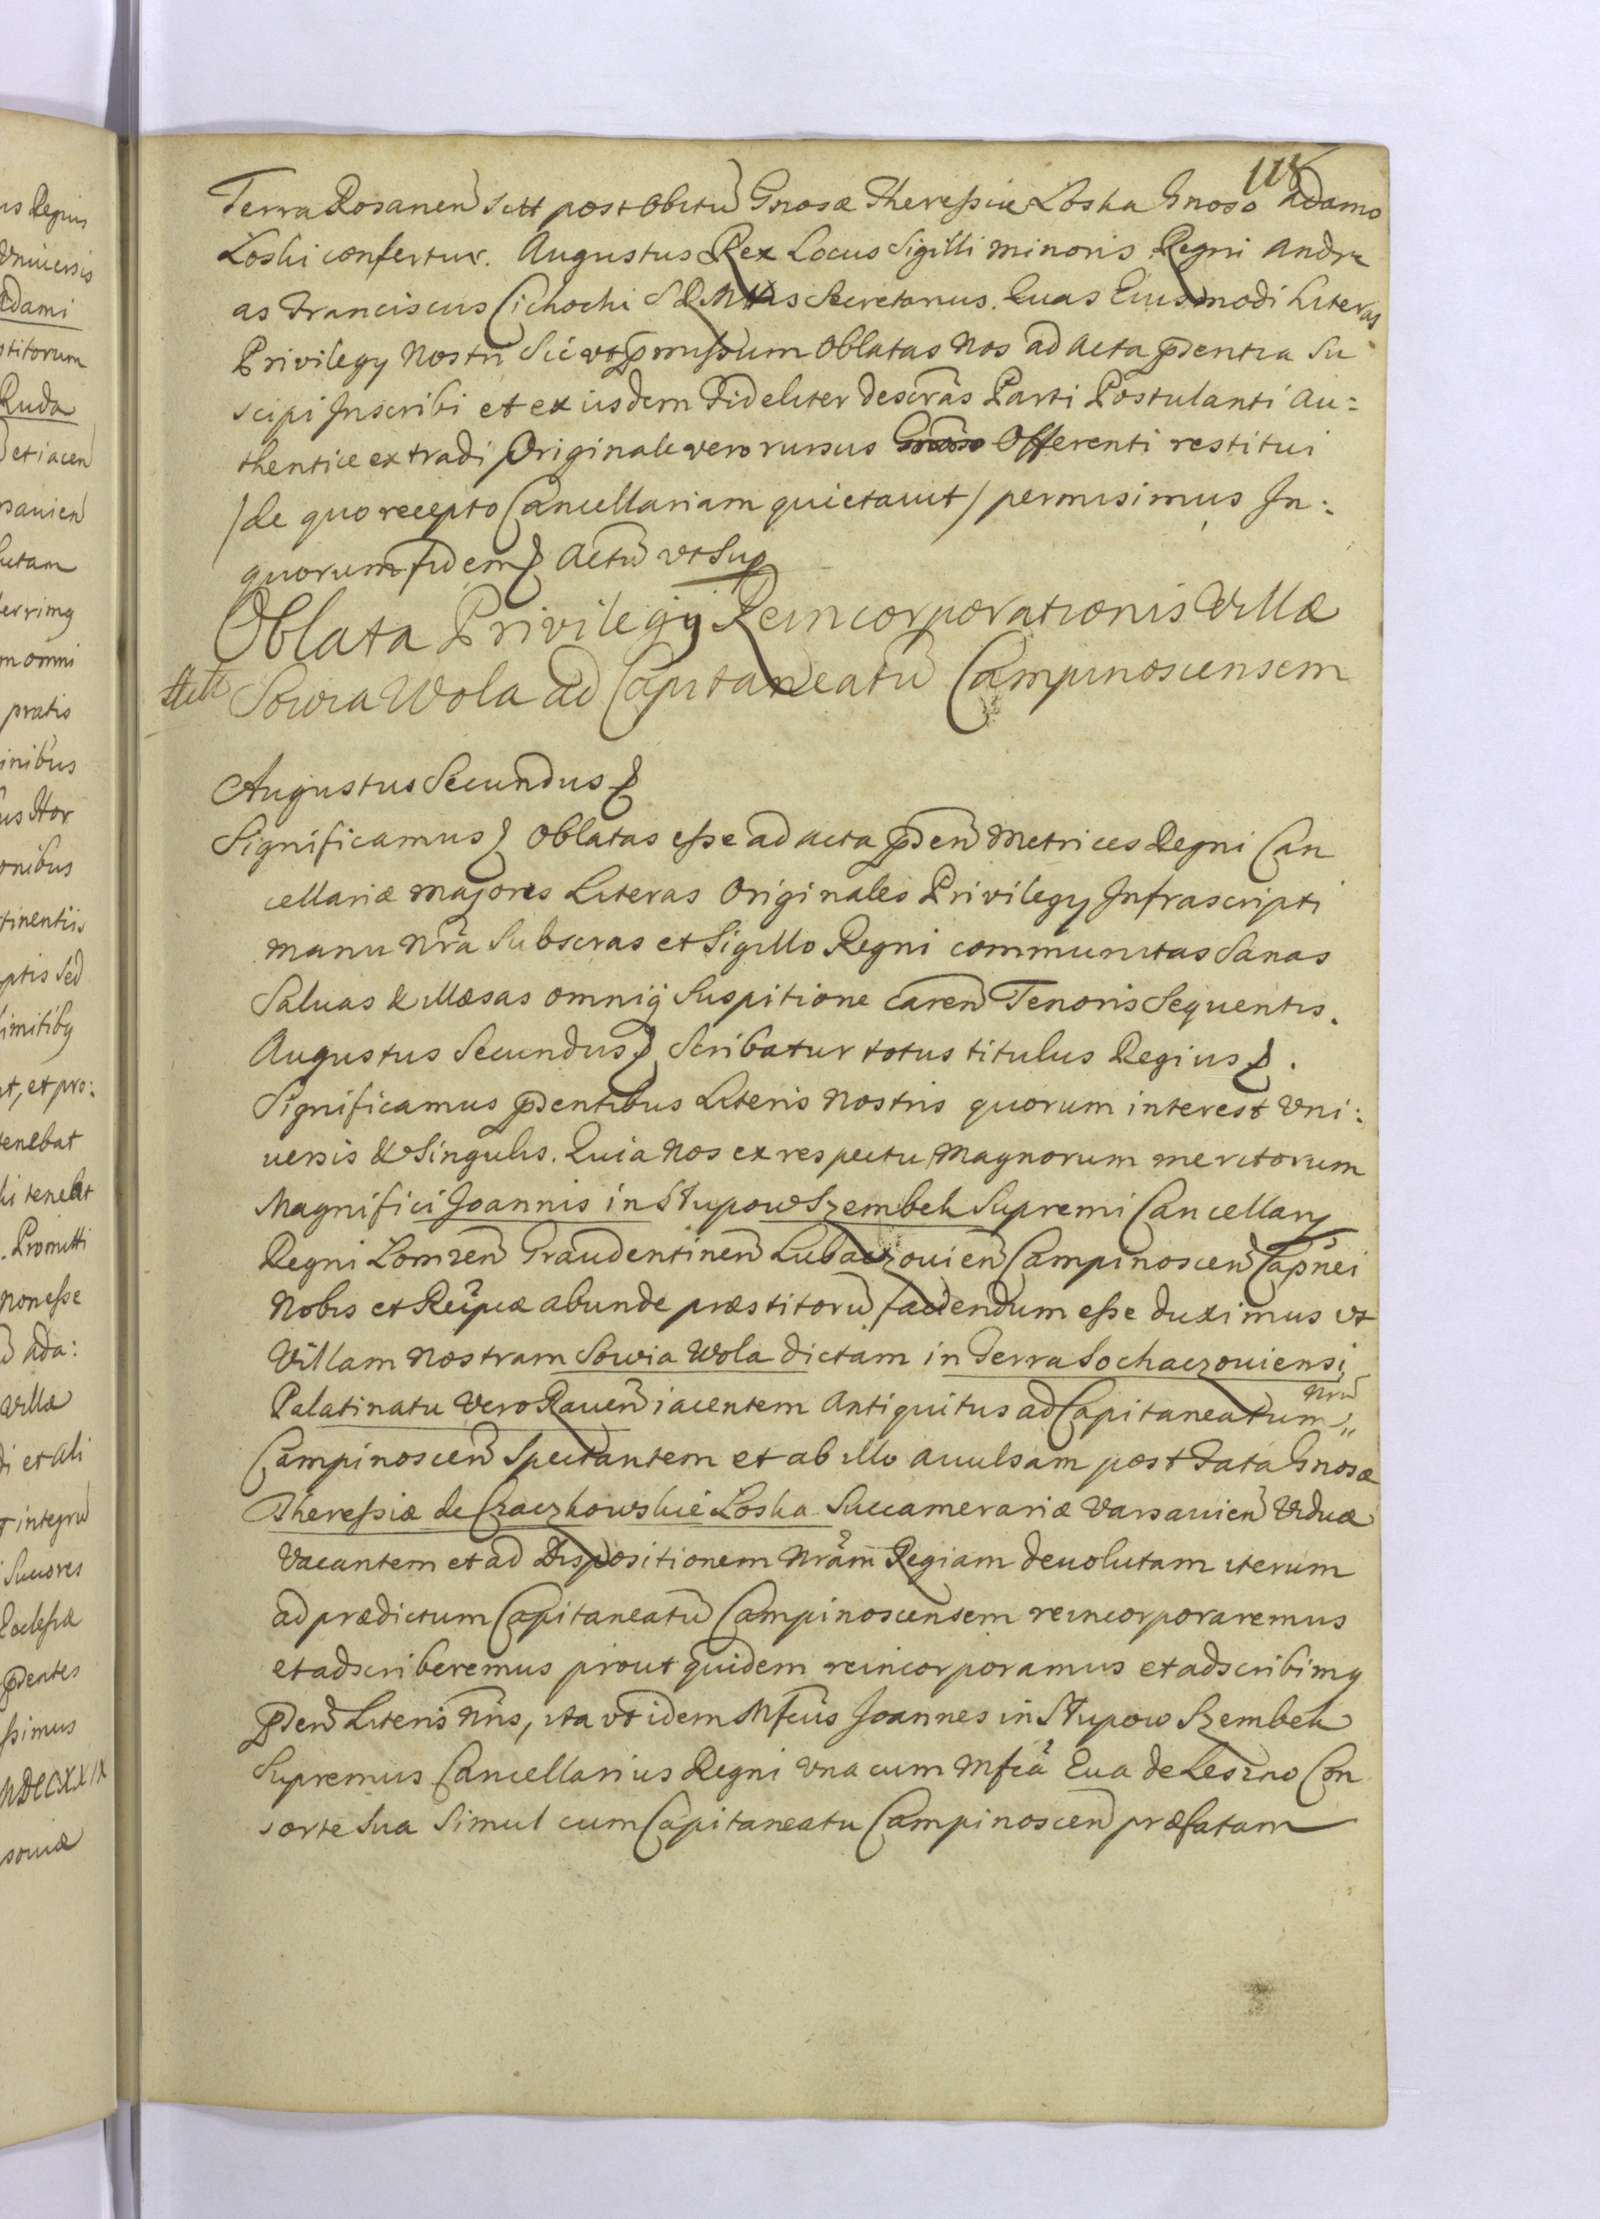 118
Terra Rosanen sitt post obitu Gnosæ Theressiæ Loska Gnoso Adamo
Loski confertur. Augustus Rex Locus Sigilli minoris Regni Andre
as Franciscus Cichocki S R Mttis Secretarius. Quas Eiusmodi Literas
Privilegy Nostri Sic vt pmissum Oblatas Nos ad Acta pdentia Su
scipi Inscribi et ex iisdem Fideliter descras Parti Postulanti Au:
thentice extradi Originale vero rursus Offerenti restitui
/de quo recepto Cancellariam quietavit/ permisimus In:
quorum fidem Actu vt Sup
Oblata Privilegy Reincorporationis Villæ
Sowia Wola ad Capitaneatu Campinoscensem
Augustus Secundus
Significamus Oblatas esse ad acta pden Metrices Regni Can
cellariæ majoris Literas Originales Privilegy Infrascripti
manu nra Subscras et Sigillo Regni communitas Sanas
Saluas & illæsas omniq Suspitione caren Tenoris Sequentis.
Augustus Secundus Scribatur totus titulus Regius.
Significamus pdentibus Literis Nostris quorum interest Vni:
uersis & Singulis. Quia Nos ex respectu Magnorum meritorum
Magnifici Joannis in Słupow Szembek Supremi Cancellary
Regni Lomzen Graudentinen Lubaczouien Campinoscen Capnei
Nobis et Reipcæ abunde præstitoru faciendum esse duximus vt
Villam nostram Sowia Wola dictam in Terra Sochaczouiensi
Palatinatu Vero Rauen iacentem Antiquitus ad Capitaneatum nru
Campinoscen Spectantem et ab illo auulsam post Fata Gnosæ
Theressiæ de Czaczkowskie Loska Succamerariæ Varsauien Viduæ
Vacantem et ad Dispositionem Nram Regiam deuolutam iterum
ad prædictum Capitaneatu Campinoscensem reincorporaremus
et adscriberemus prout quidem reincorporamus et adscribimy
pden Literis Nris, ita vt idem Mfcus Joannes in Słupow Szembek
Supremus Cancellarius Regni Vna cum Mfca Eua de Leszno Con
sorte Sua Simul cum Capitaneatu Campinoscen præfatam